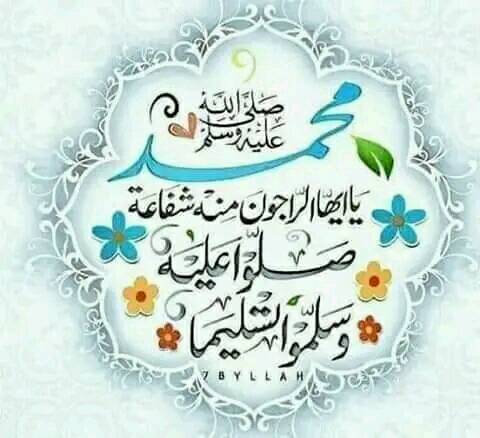 محمد
صَلَّى اللهُ
عَلَيْهِ وَسَلَّم
يا ايها الراجون منه شفاعة
صلوا عليه
وسلموا تسليما
7BYLLAH